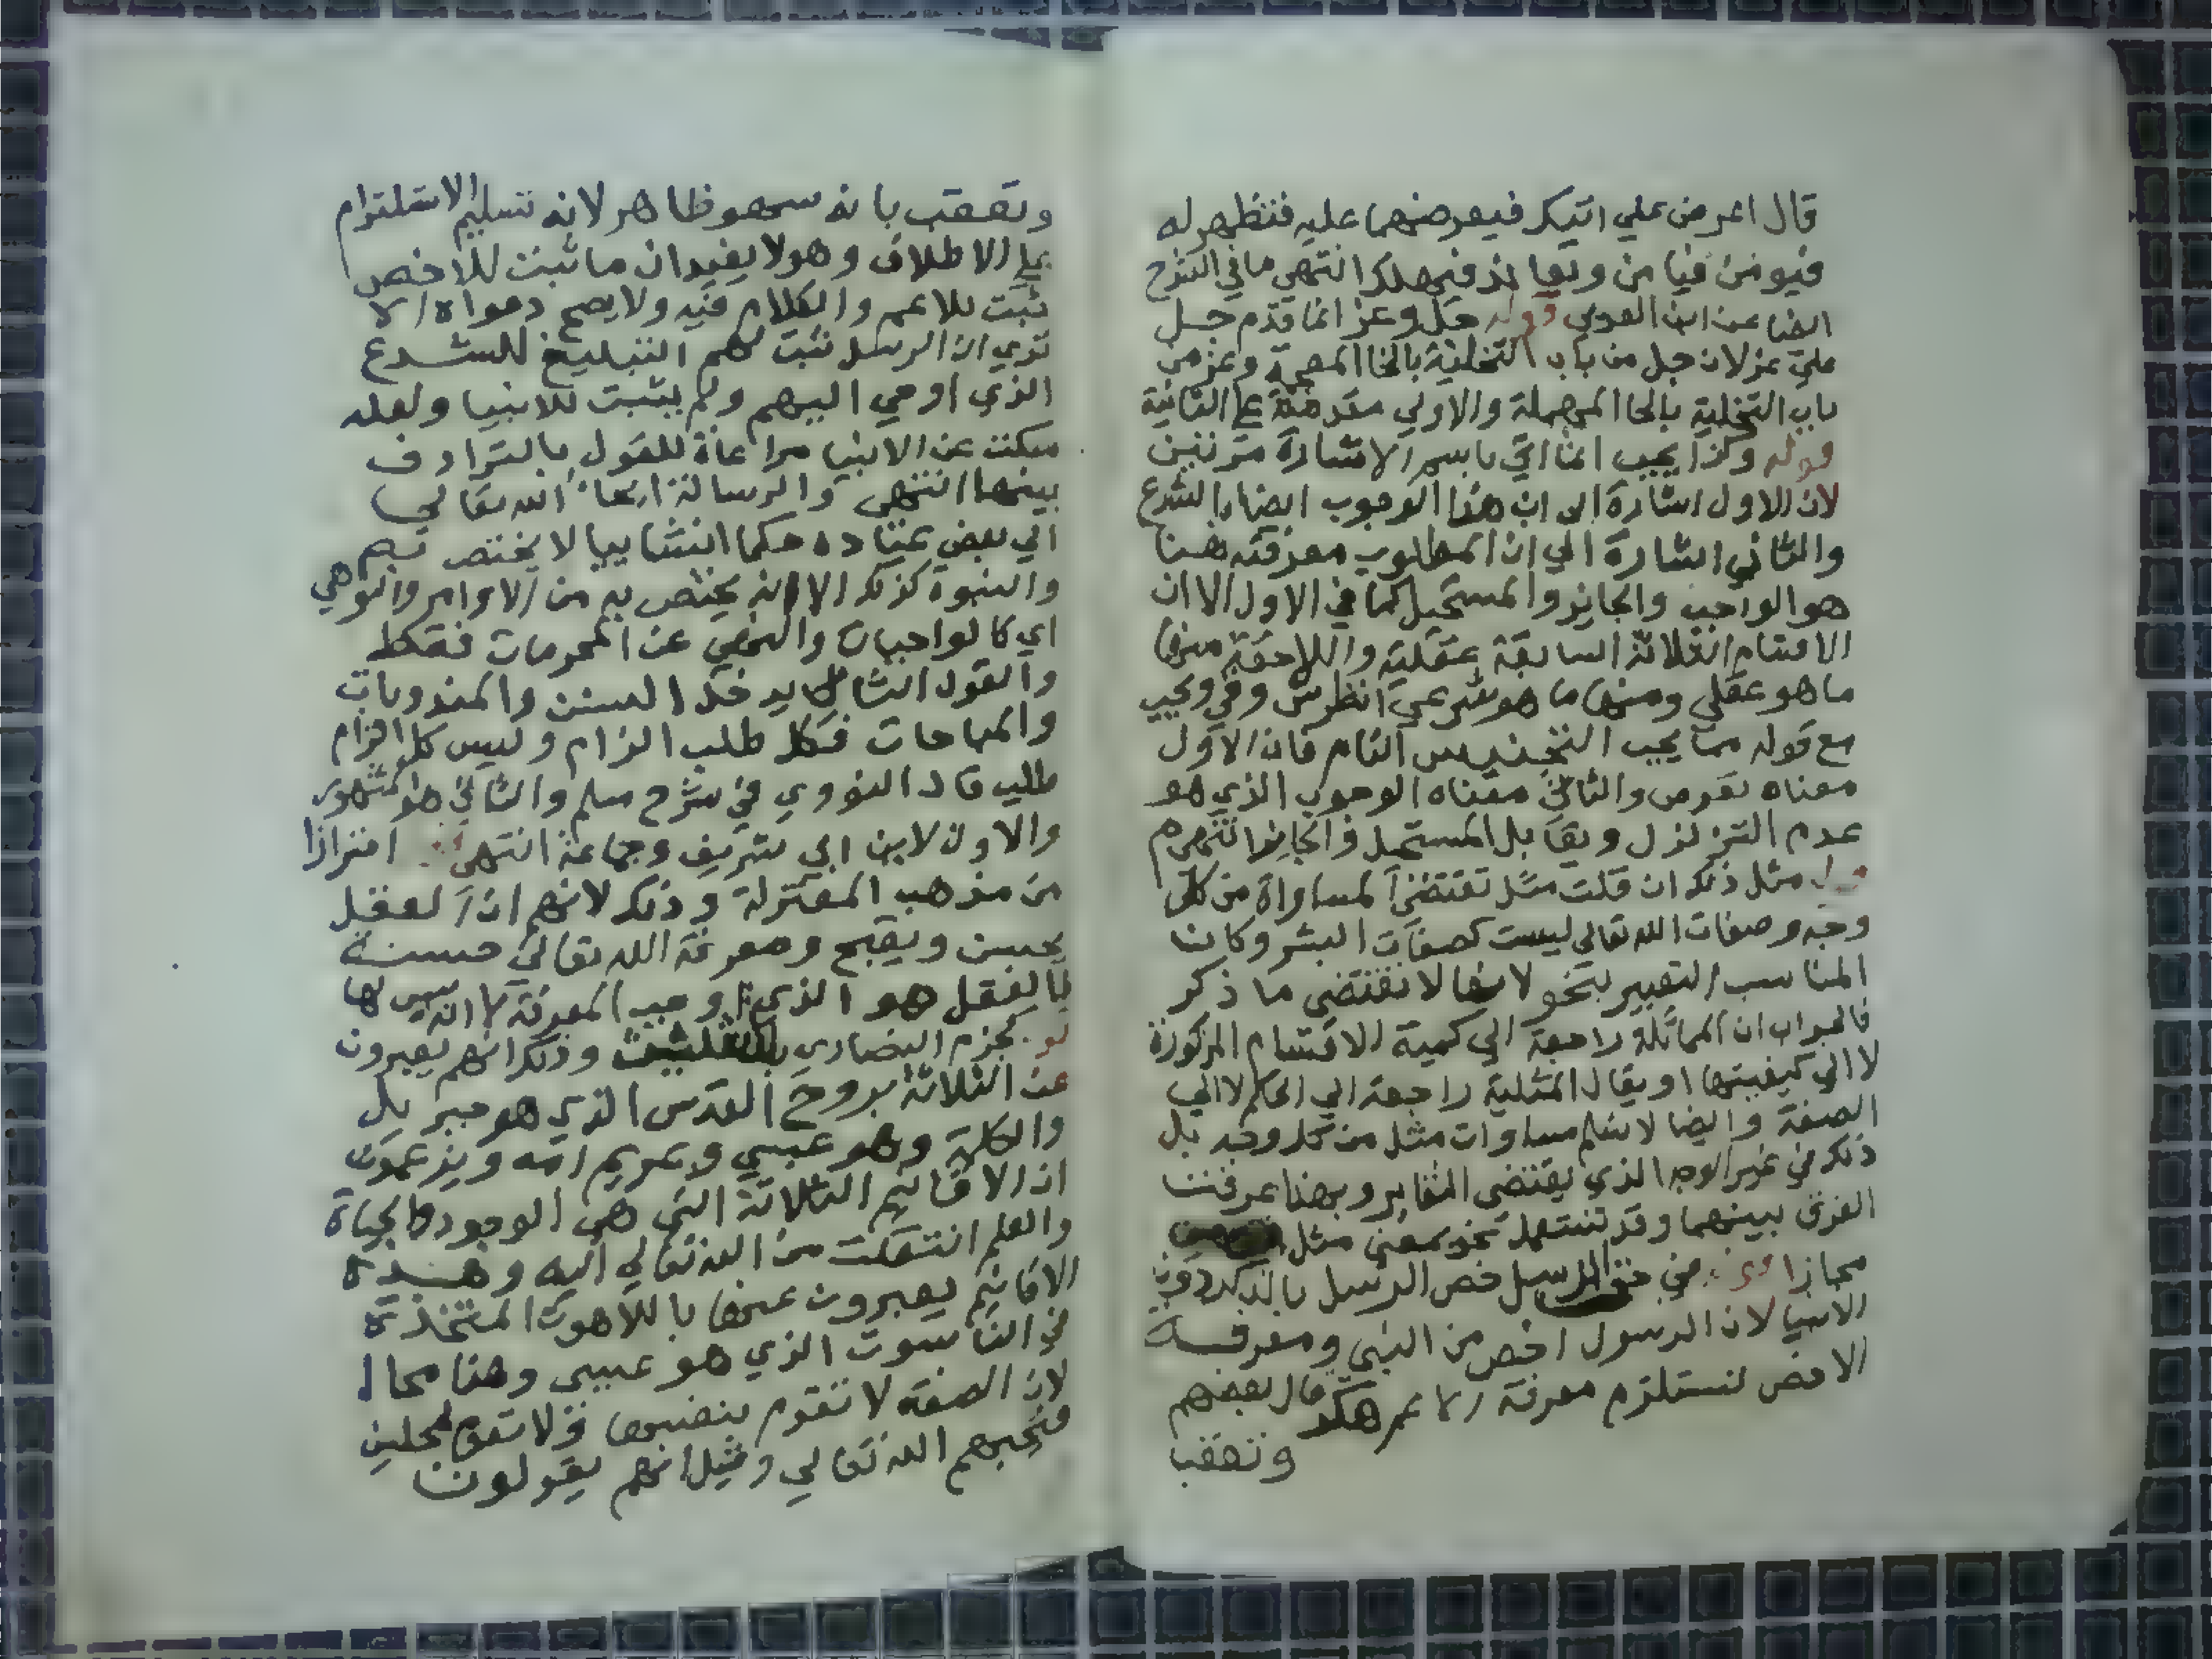 قال اعرض علي اتيكر فيعرضهما عليه فتظهر له
فيومن فيامن وتعا لذ فيهلك انتهى ما في الشرح
ايضا عن ابن العربي قوله جل وعز انما قدم جل
علي عز لان جل من باب التخلية بالخا المعجمة وعز من
باب التحلية بالحا المهملة والاولي مقدمة علي الثانية
قوله وكذا يجب انما اتي باسم الاشارة مرتين
لان الاول اشارة الى ان هذا الوجوب ايضا بالشرع
والثاني اشارة الي ان المطلوب معرفته هنا
هو الواجب والجائز والمستحيل كما في الاول الا ان
الاقسام الثلاثة السابقة عقلية واللاحقة منها
ما هو عقلي ومنها ما هو شرعي انظر س وفي ويجب
مع قوله مما يجب التجنيس التام فان الاول
معناه يفرض والثاني معناه الوجوب الذي هو
عدم التزلزل ويقابل المستحيل والجائز انتهى م
قوله مثل ذلك ان قلت مثل تقتضي المساواة من كل
وجه وصفات الله تعالى ليست كصفات البشر وكان
المناسب التعبير بنحو لانها لا تقتضي ما ذكر
فالجواب ان المماثلة راجعة الي كمية الاقسام المذكورة
لا الي كيفيتها او يقال المثلية راجعة الي الحكم لا الي
الصفة وايضا لا نسلم مساوات مثل من كل وجه بل
ذلك في غير الوجه الذي يقتضي التغاير وبهذا عرفت
الفرق بينهما وقد تستعمل نحو بمعنى مثل
مجازا قوله في حق الرسل خص الرسل بالذكر دون
الانبيا لان الرسول اخص من النبي ومعرفة
الاخص تستلزم معرفة الاعم هكذا قال بعضهم
وتعقب
وتعقب بانه سهو ظاهر لانه تسليم الاستلزام
علي الاطلاق وهو لا يفيد ان ما ثبت للاخص
ثبت للاعم والكلام فيه ولا يصح دعواه الا
تري ان الرسل ثبت لهم التبليغ للشرع
الذي اوحي اليهم ولم يثبت للانبيا ولعله
سكت عن الانبيا مراعاة للقول بالترادف
بينهما انتهى والرسالة ايحا الله تعالي
الي بعض عباده حكما انشائيا لا يختص به
والنبوة كذلك الا انه يختص به من الاوامر والنواهي
اي كالواجبات والنهي عن المحرمات فقط
والقول الشامل يدخل السنن والمندوبات
والمباحات فكل طلب الزام وليس كل الزام
طلب قال النووي في شرح مسلم والثاني هو المشهور
والاول لابن ابي شريف وجماعة انتهى قوله احترازا
من مذهب المعتزلة وذلك لانهم ان العقل
يحسن ويقبح ومعرفة الله تعالى حسنة
فالعقل هو الذي اوجب المعرفة لا انه ليس لها
قوله كجزم النصاري بالتثليث وذلك انهم يعبرون
عن الثلاثة بروح القدس الذي هو جبريل
والكلمة وهو عيسي وبمريم امه ويزعمون
ان الاقانيم الثلاثة التي هي الوجود والحياة
والعلم انتقلت من الله تعالي اليه وهذه
الاقانيم يعبرون عنها باللاهوت المتخذة
في الناسوت الذي هو عيسى وهذا محال
لان الصفة لا تقوم بنفسها ولا تقوم بمحلين
فقبحهم الله تعالي وقيل انهم يقولون